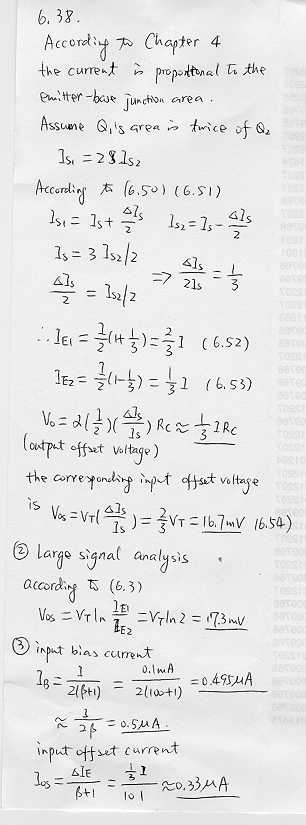 6.38.
According to Chapter 4
the current is proportional to the
emitter-base junction area.
Assume Q1's area is twice of Q2
IS1 = 2 IS2
According to (6.50) (6.51)
IS1 = IS + ΔIS/2 IS2 = IS - ΔIS/2
IS = 3 IS2/2
ΔIS/2 = IS2/2 => ΔIS/2IS = 1/3
∴ IE1 = I/2(1+1/3) = 2/3 I (6.52)
IE2 = I/2(1-1/3) = 1/3 I (6.53)
Vo = α(I/2)(ΔIS/IS) RC ≈ 1/3 IRC
(output offset voltage)
the corresponding input offset voltage
is Vos = VT(ΔIS/IS) = 2/3 VT = 16.7mV (6.54)
② Large signal analysis
according to (6.3)
Vos = VT ln IE1/IE2 = VT ln 2 = 17.3mV
③ input bias current
IB = I/2(β+1) = 0.1mA/2(100+1) = 0.495μA
≈ I/2β = 0.5μA.
input offset current
Ios = ΔIE/β+1 = 1/3 I/101 ≈ 0.33μA